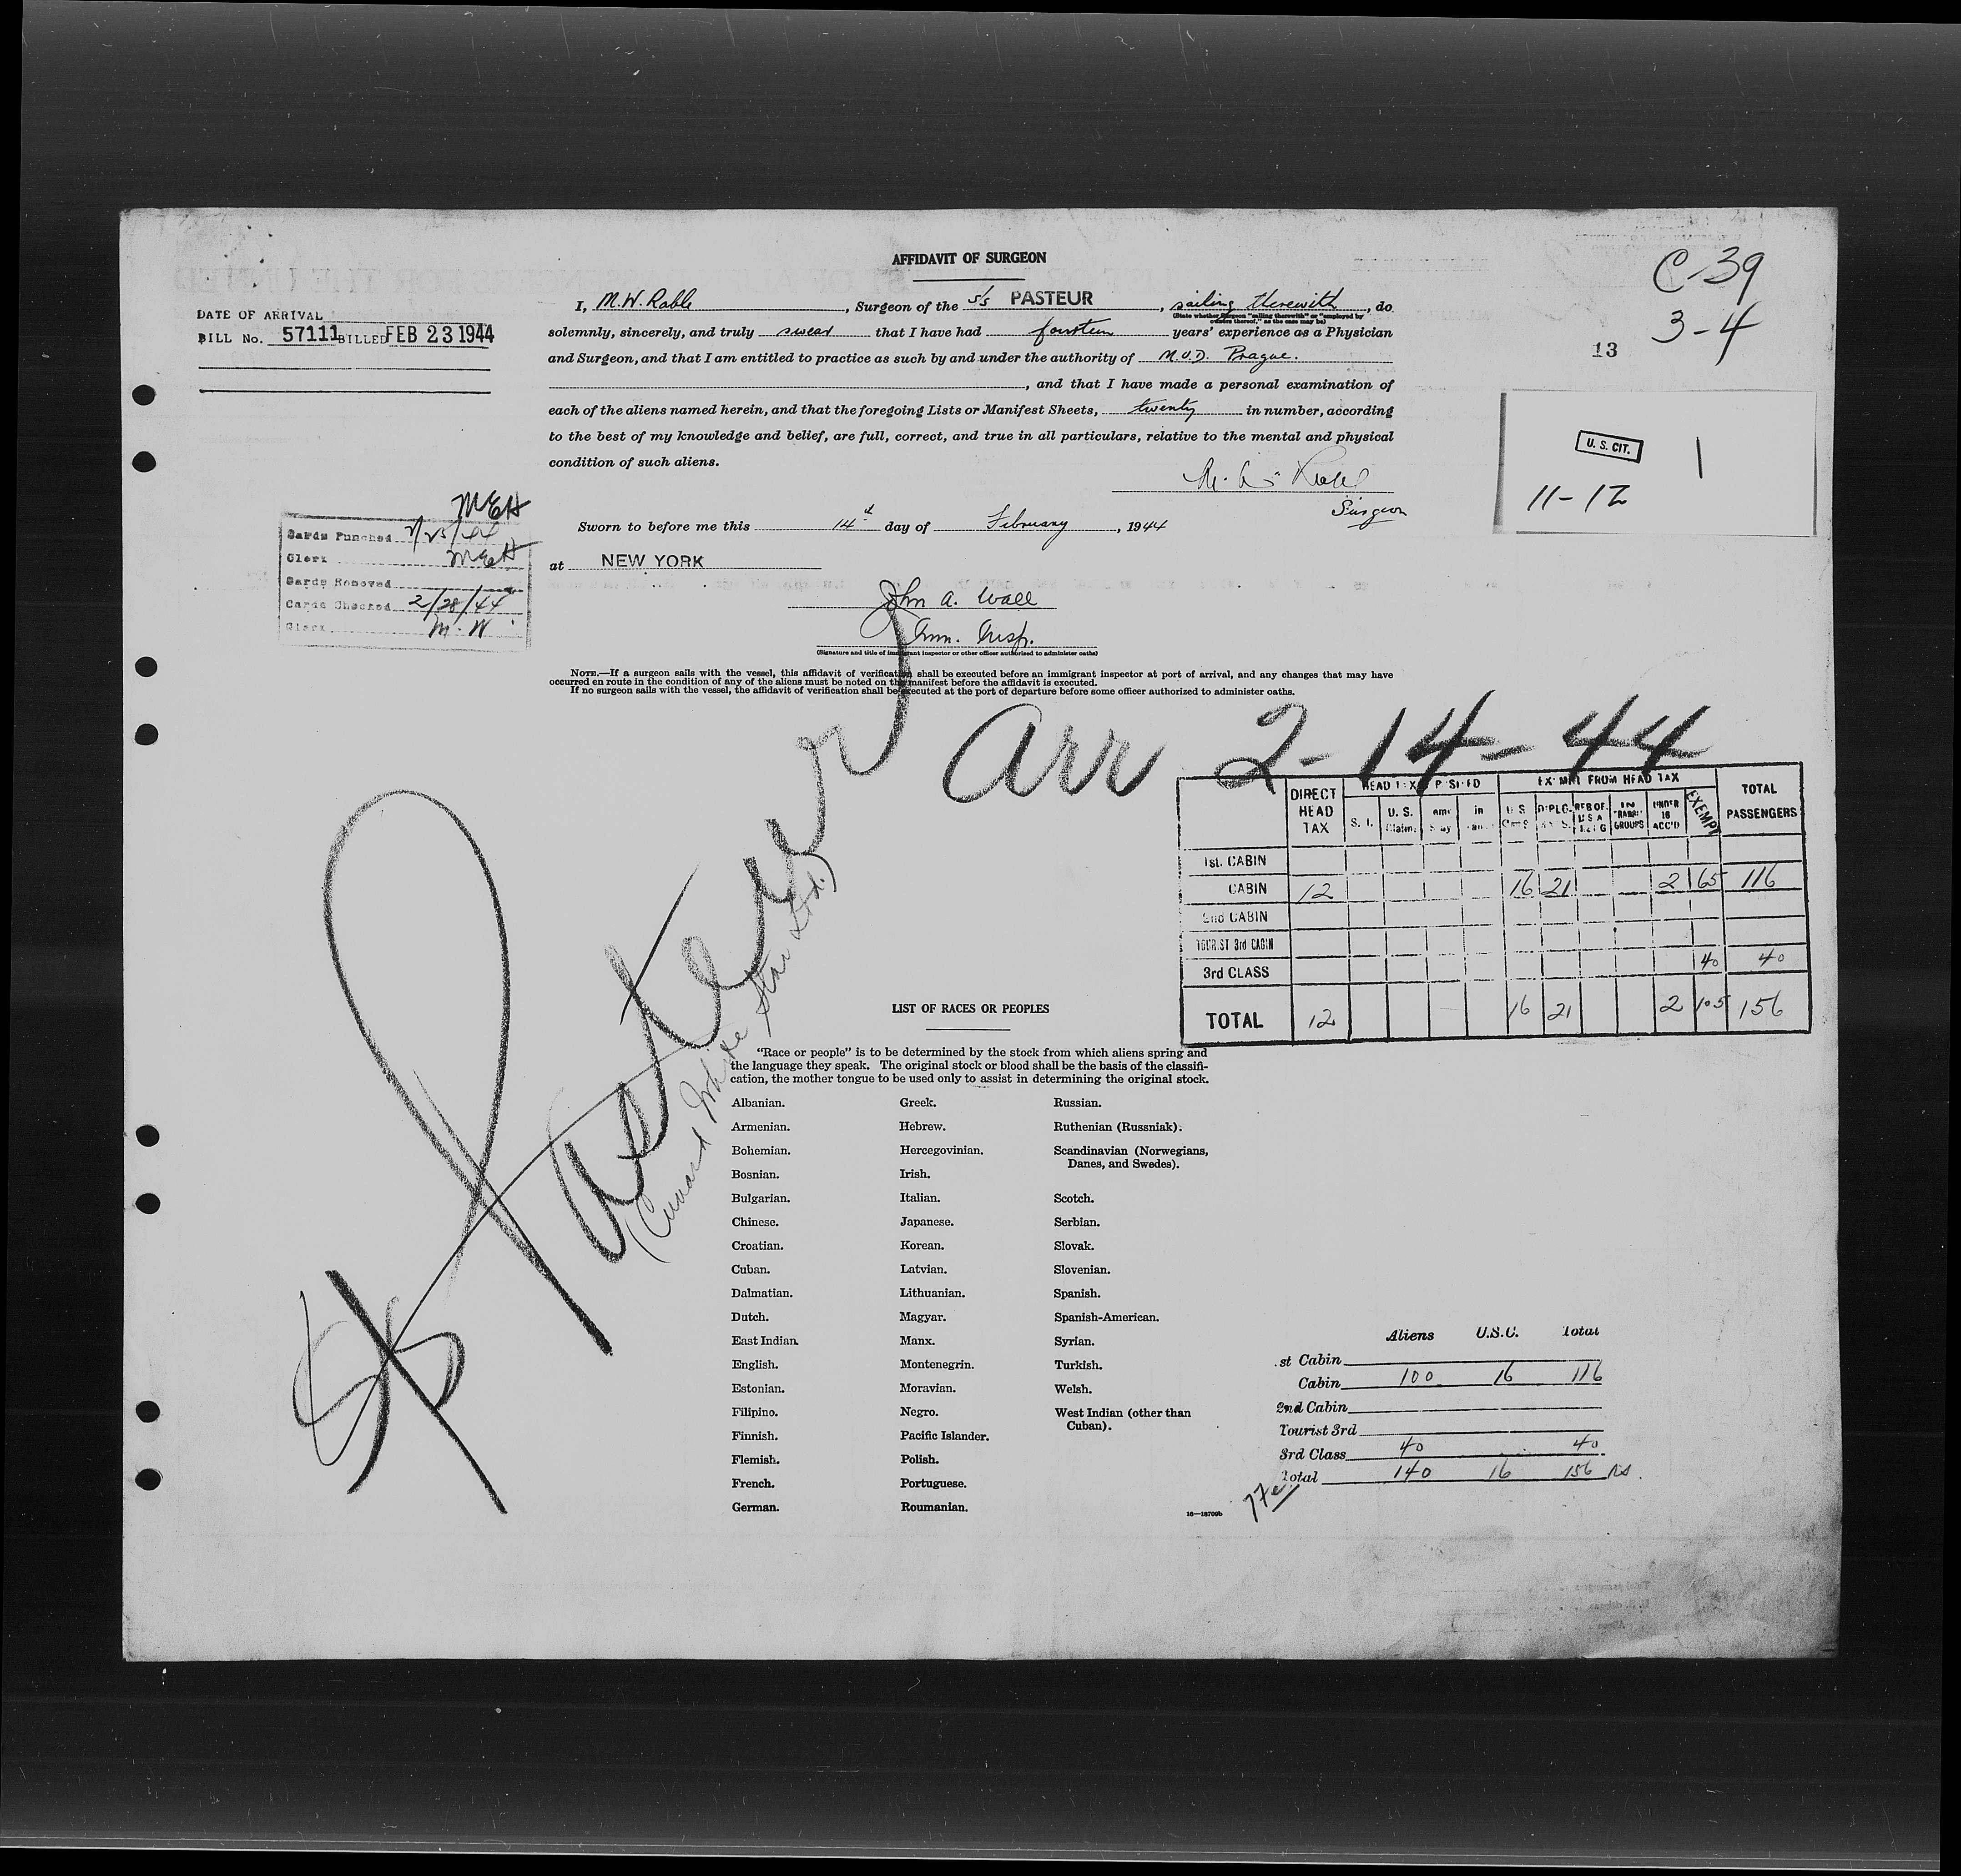 AFFIDAVIT OF SURGEON
C-39
3-4
13
DATE OF ARRIVAL
BILL No. 57111 BILLED FEB 23 1944
I, M.W. Rable, Surgeon of the S/S PASTEUR, sailing therewith, do
(State whether Surgeon "sailing therewith" or "employed by owners thereof," as the case may be)
solemnly, sincerely, and truly swear that I have had fourteen years' experience as a Physician
and Surgeon, and that I am entitled to practice as such by and under the authority of M.U.D. Prague.
, and that I have made a personal examination of
each of the aliens named herein, and that the foregoing Lists or Manifest Sheets, twenty in number, according
to the best of my knowledge and belief, are full, correct, and true in all particulars, relative to the mental and physical
condition of such aliens.
Surgeon
U. S. CIT. 1
11-12
Sworn to before me this 14th day of February, 1944
at NEW YORK
John A. Wall
Imm. Insp.
(Signature and title of immigrant inspector or other officer authorized to administer oaths)
MEH
Cards Punched 2/25/44
Clerk MEH
Cards Removed
Cards Checked 2/28/44
Clerk M.W.
NOTE.—If a surgeon sails with the vessel, this affidavit of verification shall be executed before an immigrant inspector at port of arrival, and any changes that may have
occurred en route in the condition of any of the aliens must be noted on the manifest before the affidavit is executed.
If no surgeon sails with the vessel, the affidavit of verification shall be executed at the port of departure before some officer authorized to administer oaths.
arr 2-14-44
S/S Pasteur
(Cunard White Star Ltd.)
DIRECT HEAD TAX
S. I.
U. S. Claims
EXEMPT FROM HEAD TAX
U S
IN TRANSIT GROUPS
UNDER 16 ACC'D
EXEMPT
TOTAL PASSENGERS
1st. CABIN
CABIN 12 16 21 2 65 116
2nd CABIN
TOURIST 3rd CABIN
3rd CLASS 40 40
TOTAL 12 16 21 2 105 156
LIST OF RACES OR PEOPLES
"Race or people" is to be determined by the stock from which aliens spring and
the language they speak. The original stock or blood shall be the basis of the classifi-
cation, the mother tongue to be used only to assist in determining the original stock.
Albanian. Greek. Russian.
Armenian. Hebrew. Ruthenian (Russniak).
Bohemian. Hercegovinian. Scandinavian (Norwegians,
Danes, and Swedes).
Bosnian. Irish.
Bulgarian. Italian. Scotch.
Chinese. Japanese. Serbian.
Croatian. Korean. Slovak.
Cuban. Latvian. Slovenian.
Dalmatian. Lithuanian. Spanish.
Dutch. Magyar. Spanish-American.
East Indian. Manx. Syrian.
English. Montenegrin. Turkish.
Estonian. Moravian. Welsh.
Filipino. Negro. West Indian (other than
Cuban).
Finnish. Pacific Islander.
Flemish. Polish.
French. Portuguese.
German. Roumanian.
16—18709b
Aliens U.S.C. Total
st Cabin
Cabin 100 16 116
2nd Cabin
Tourist 3rd
3rd Class 40 40
Total 140 16 156